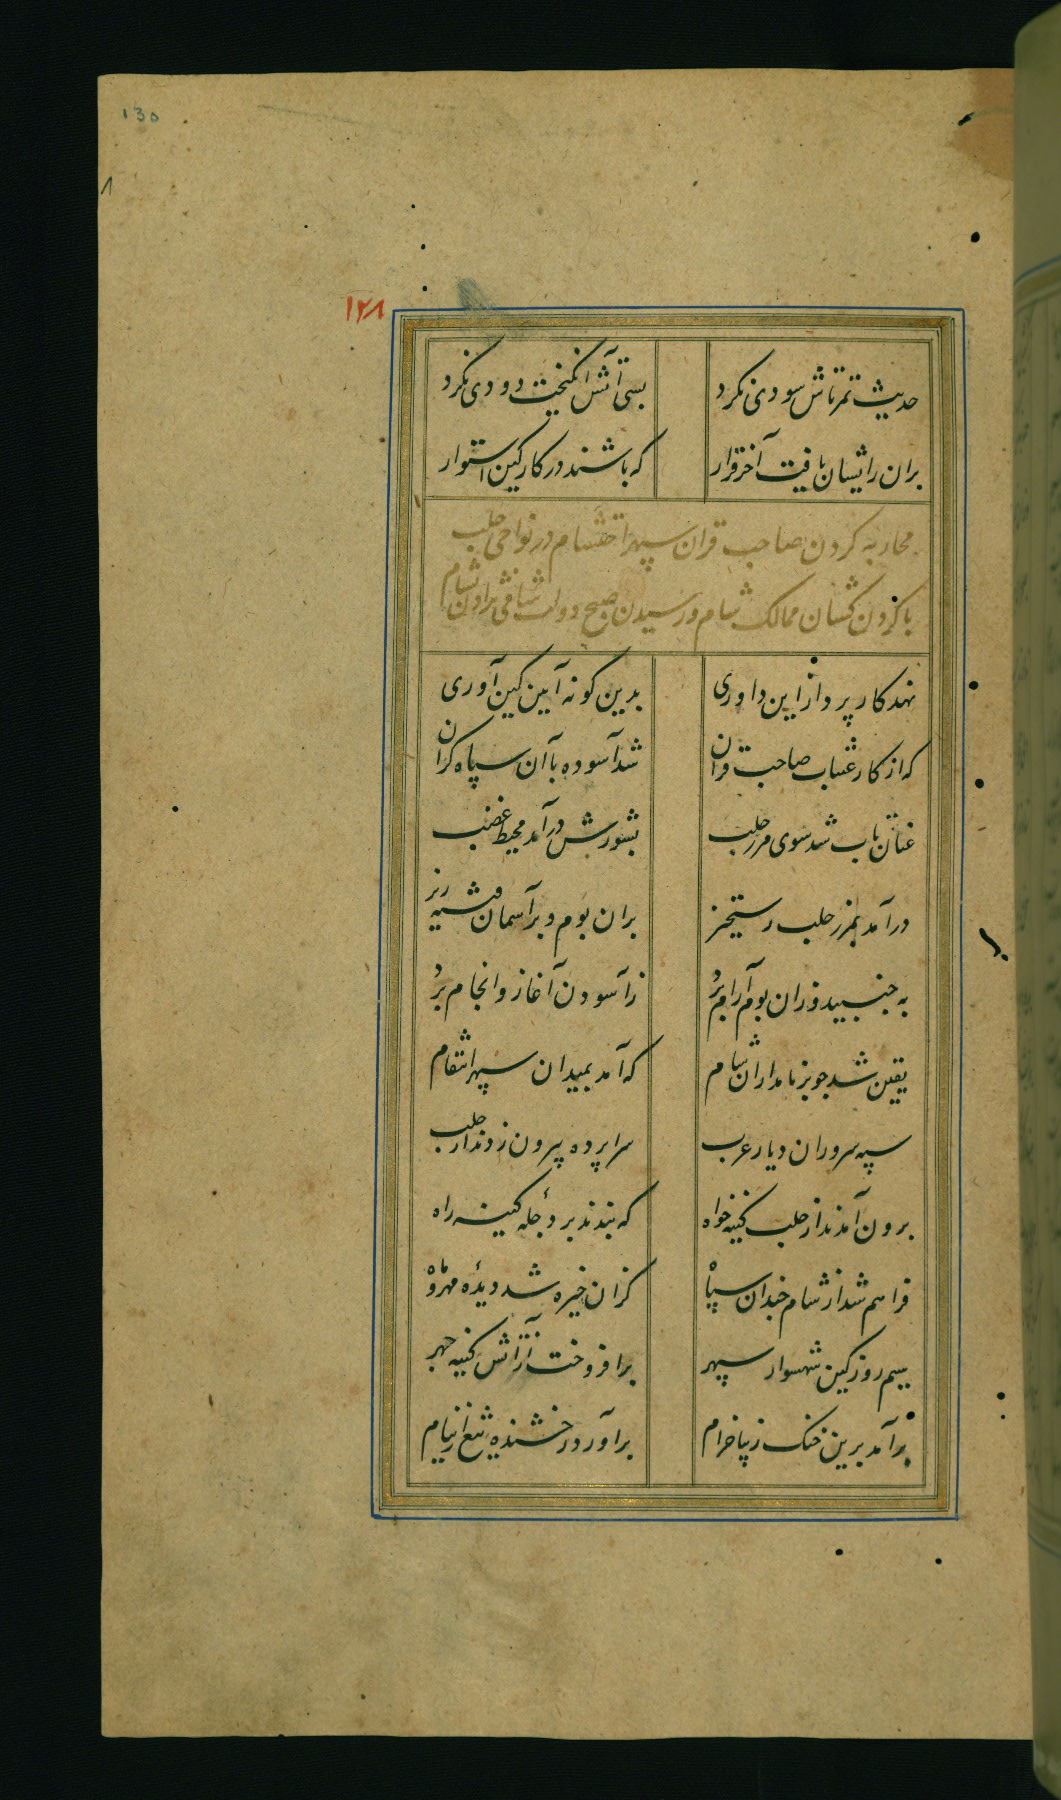 ۱۳۵
۱۲۸
حدیث تمرتاش سودی نکرد بسی آتش انکیخت دودی نکرد
بران رایشان یافت آخر قرار که باشند در کار کین استوار
محاربه کردن صاحب قران سپهر احتشام در نواحی حلب
با کردن کشان ممالک شام و رسیدن صبح دولت
نهد کار پرداز این داوری بدین کونه آیین کین آوری
که از کار عنتاب صاحب قران شد آسوده با آن سپاه کران
عنان تاب شد سوی مرز حلب بشورش درآمد محیط غضب
درآمد بمرز حلب رستخیز بران بوم و بر آسمان فتنه ریز
به جنبید وزان بوم آرام برد ز آسودن آغاز و انجام برد
یقین شد چو بر نامداران شام که آمد بمیدان سپهر انتقام
سپه سروران دیار عرب سراپرده بیرون زدند از حلب
برون آمدند از حلب کینه خواه که بندند بر دجله کینه راه
فراهم شد از شام چندان سپاه کزان خیره شد دیده مهر و ماه
سیم روز کین شهسوار سپهر برافروخت از آتش کینه چهر
برآمد برین خنک زیبا خرام برآورد رخشنده تیغ از نیام